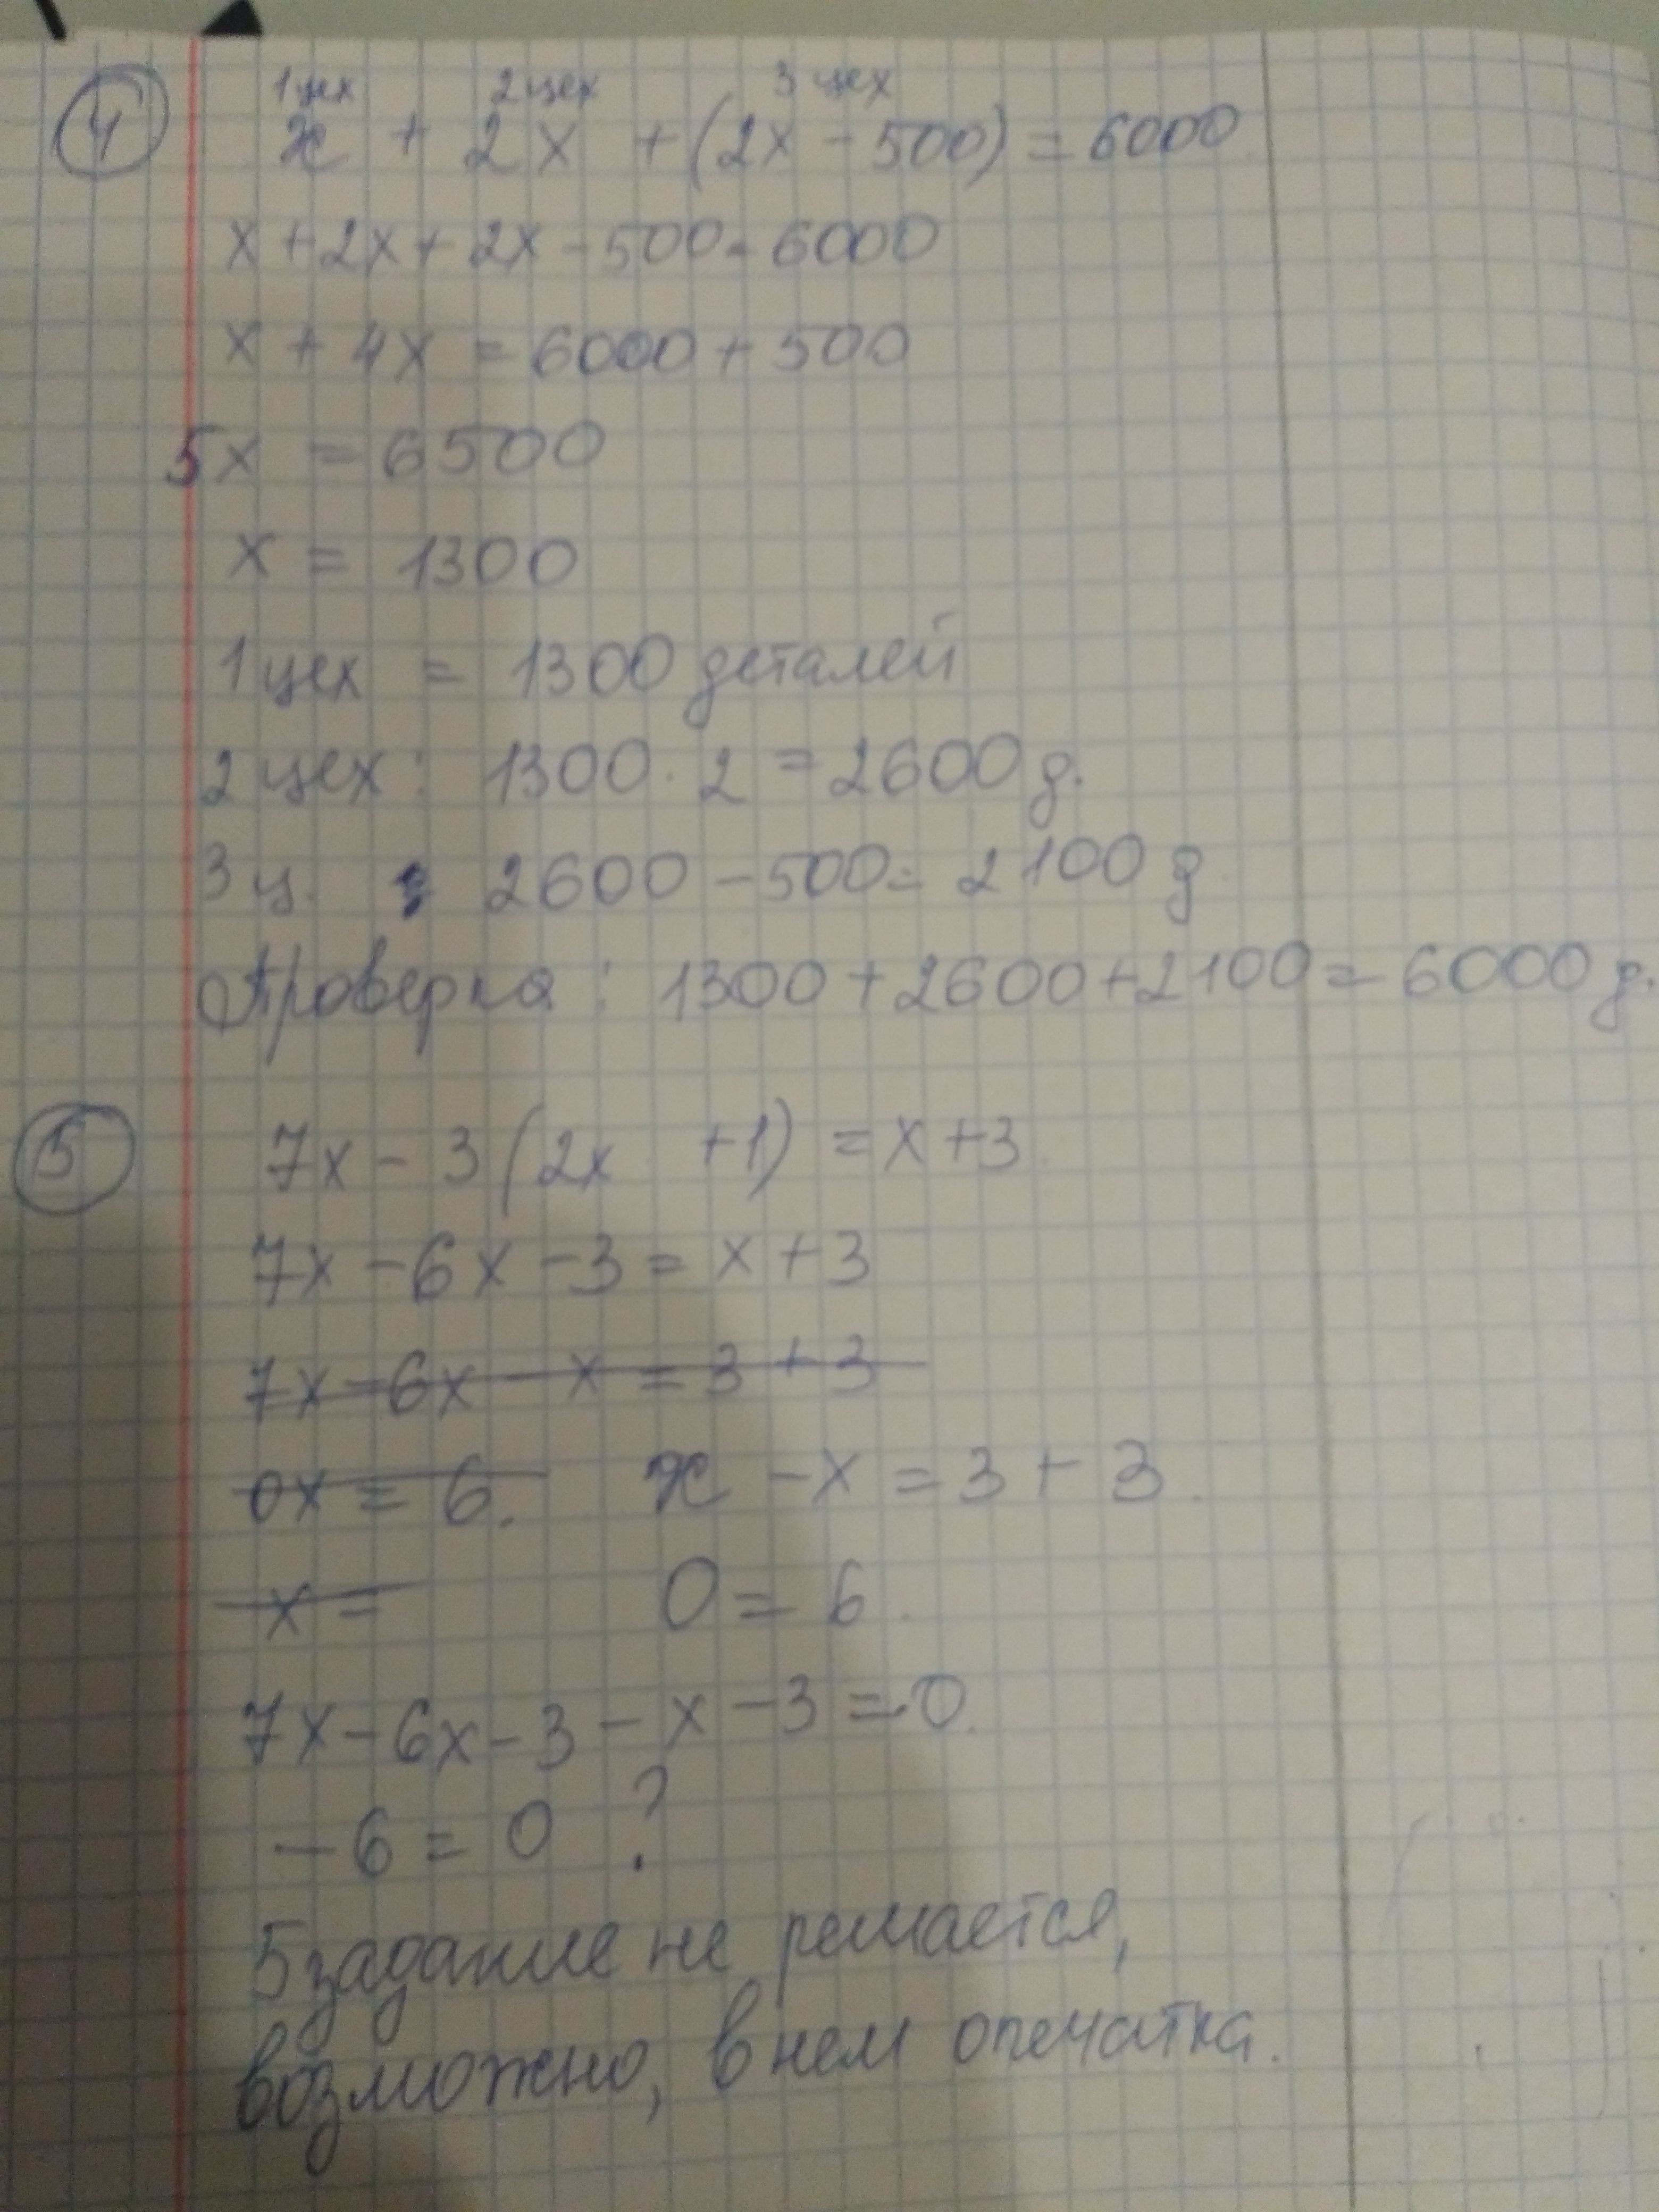 1 цех 2 цех 3 цех
④ x + 2x + (2x - 500) = 6000
x + 2x + 2x - 500 = 6000
x + 4x = 6000 + 500
5x = 6500
x = 1300
1 цех = 1300 деталей
2 цех: 1300 · 2 = 2600 д.
3 ц. 2600 - 500 = 2100 д.
Проверка: 1300 + 2600 + 2100 = 6000 д.
⑤ 7x - 3(2x +1) = x + 3
7x - 6x - 3 = x + 3
7x - 6x - x = 3 + 3
0x = 6. x - x = 3 + 3
x = 0 = 6
7x - 6x - 3 - x - 3 = 0
-6 = 0 ?
5 задание не решается,
возможно, в нем опечатка.